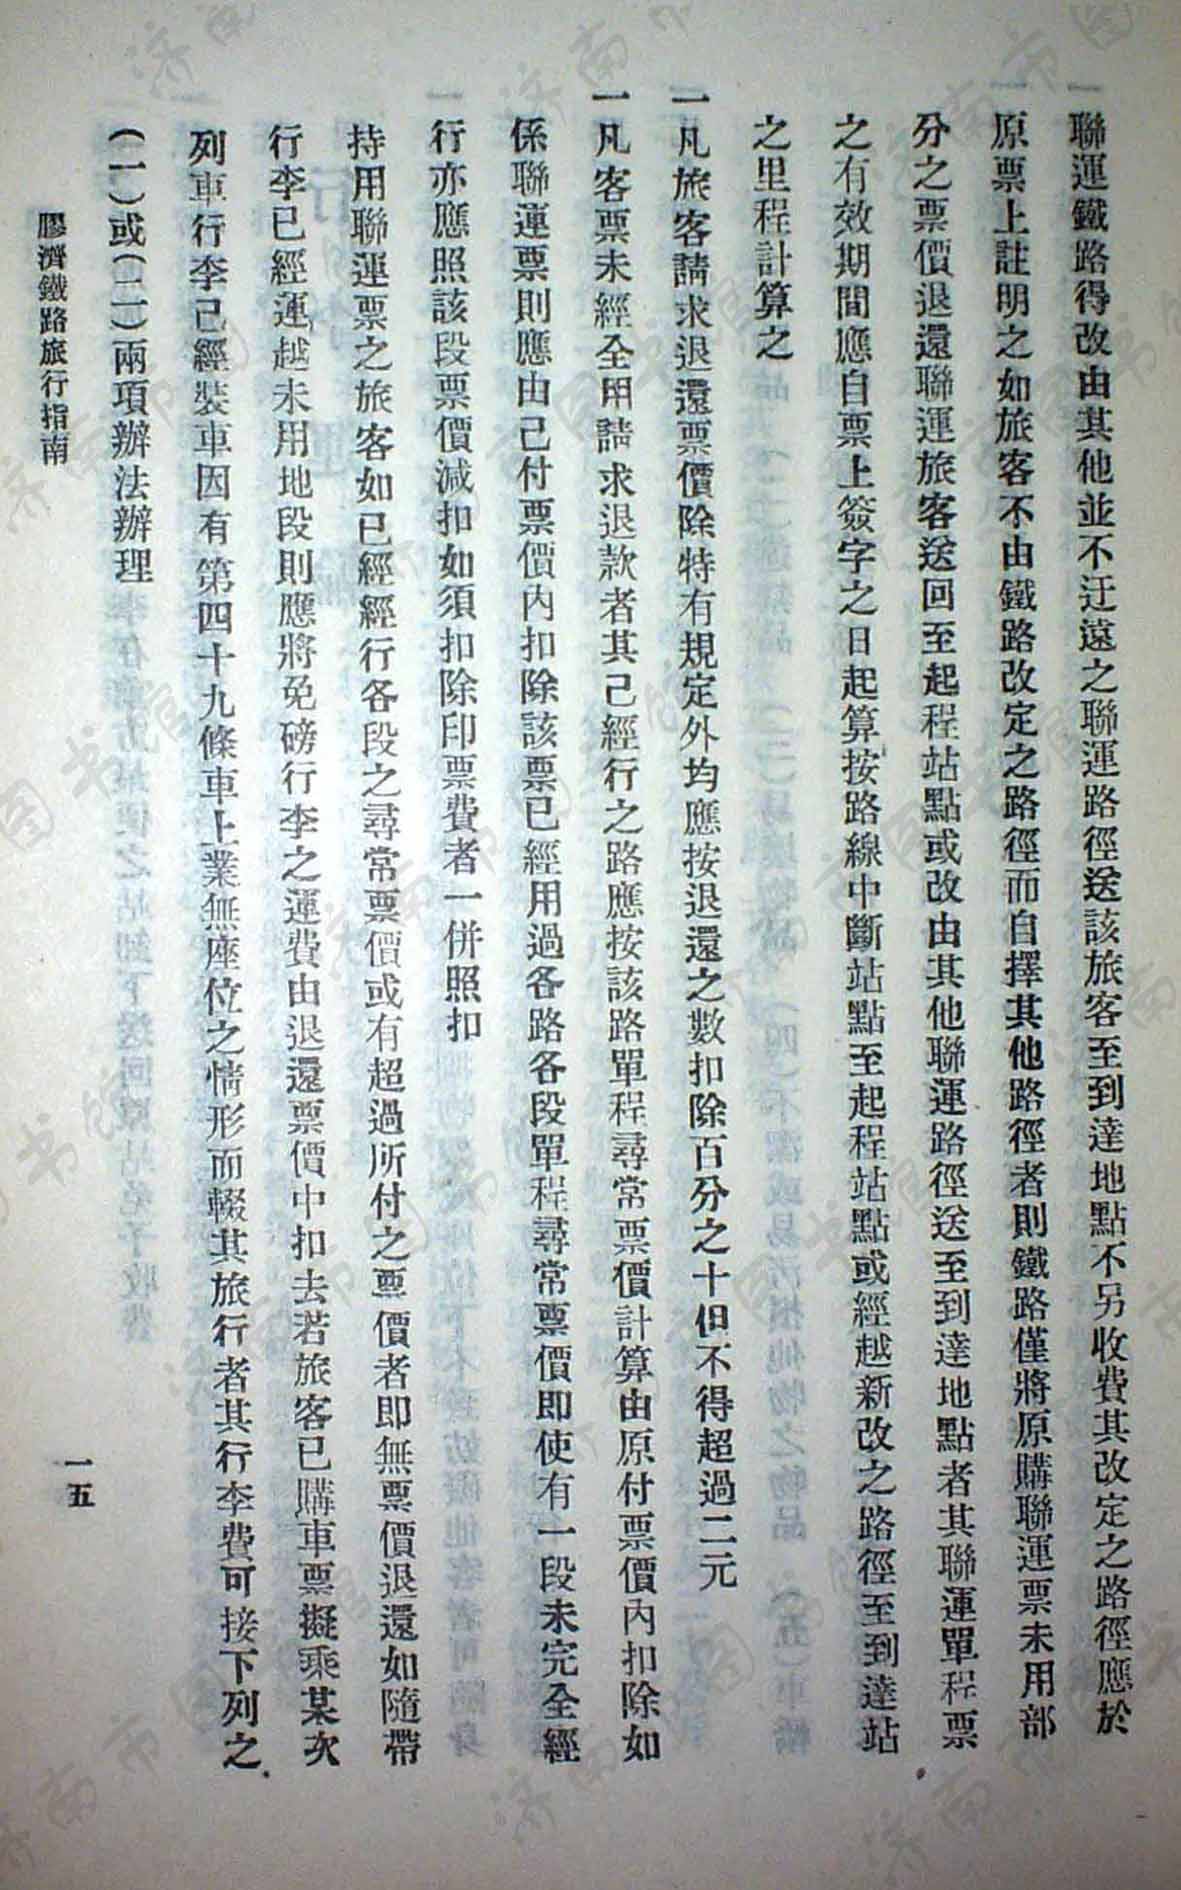 聯運鐵路得改由其他並不迂遠之聯運路徑送該旅客至到達地點不另收費其改定之路徑應於
原票上註明之如旅客不由鐵路改定之路徑而自擇其他路徑者則鐵路僅將原購聯運票未用部
分之票價退還聯運旅客送回至起程站點或改由其他聯運路徑送至到達地點者其聯運單程票
之有效期間應自票上簽字之日起算按路線中斷站點至起程站點或經越新改之路徑至到達站
之里程計算之
一凡旅客請求退還票價除特有規定外均應按退還之數扣除百分之十但不得超過二元
一凡客票未經全用請求退款者其己經行之路應按該路單程尋常票價計算由原付票價內扣除如
係聯運票則應由己付票價內扣除該票已經用過各路各段單程尋常票價即使有一段未完全經
行亦應照該段票價減扣如須扣除印票費者一併照扣
持用聯運票之旅客如已經經行各段之尋常票價或有超過所付之票價者即無票價退還如隨帶
行李已經運越未用地段則應將免磅行李之運費由退還票價中扣去若旅客已購車票擬乘某次
列車行李已經裝車因有第四十九條車上業無座位之情形而輟其旅行者其行李費可接下列之
(一)或(二)兩項辦法辦理
膠濟鐵路旅行指南
一五
济南市图书馆